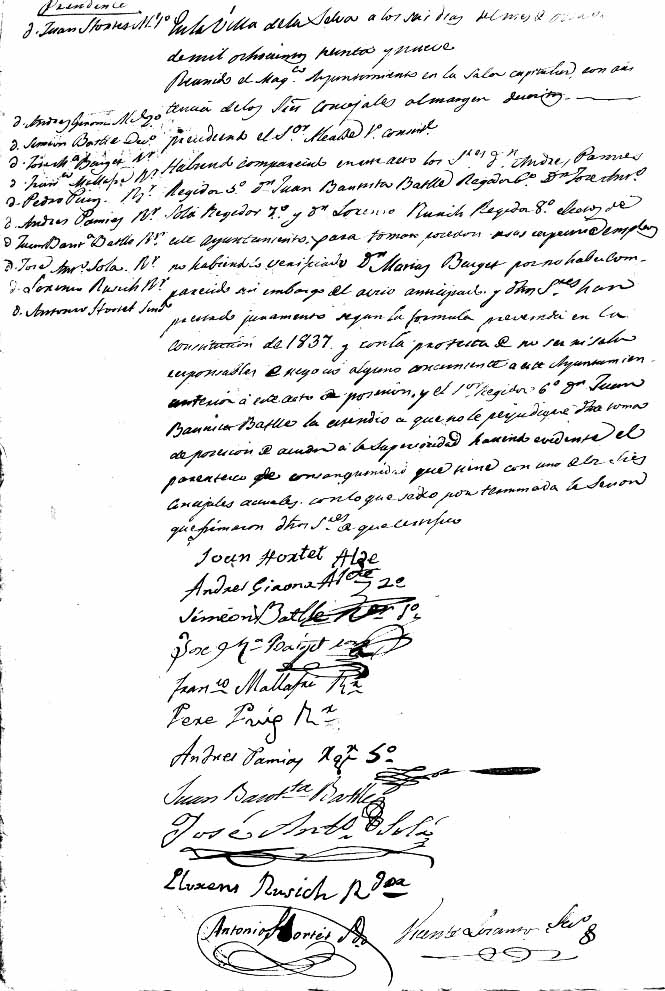 Presidente
D. Juan Hortet Al. 1º
D. Andres Girona Al. 2º
D. Simeon Batlle
D. Josef Mª Barget Rr
D. Franco Mallafré Rr
D. Pedro Puig Rr
D. Andres Pamias Rr
D. Juan Bautª Batlle Rr
D. José Antº Solá Rr
D. Lorenzo Rusich Rr
D. Antonio Hortet Sindº
En la Villa de la Selva a los seis dias del mes de
de mil ochocientos treinta y nueve
Reunido el Magco Ayuntamiento en la Sala capitular con asis
tencia de los Sres Concejales al margen
presidiendo el Sor Alcalde 1º constil
Habiendo comparecido en este acto los Sres Dn Andres Pamies
Regidor 5º Dn Juan Bautista Batlle Regidor 6º Dn Jose Antº
Solá Regidor 7º y Dn Lorenzo Rusich Regidor 8º electos de
este Ayuntamiento para tomar posesion de sus empleos
no habiendolo verificado Dn Barget por no haber com-
parecido sin embargo del aviso anticipado y dhos Sres han
prestado juramento segun la formula prevenida en la
Constitucion de 1837 y con la protesta de no ser ni salir
responsables de negocio alguno concerniente a este Ayuntamien-
anterior á este acto de posesion, y el Sor Regidor 6º Dn Juan
Bautista Batlle la estendió a que no le perjudique dha toma
de posesion de acudir á la Superioridad haciendo evidente el
parentesco de consanguinidad que tiene con uno de los Sres
Concejales actuales. con lo que se dio por terminada la Sesion
que firmaron dhos Sres de que certifico
Joan Hortet Alde
Andres Girona Alde 2º
Simeon Batlle Rer 1º
Jose Mª Barget
Franco Mallafré Rr
Pere Puig Rr
Andres Pamias Rgr 5º
Juan Bautta Batlle
José Anto Solá
Llorens Rusich Rdor
Antonio Hortet Sdo
Vicente Lozano Srio